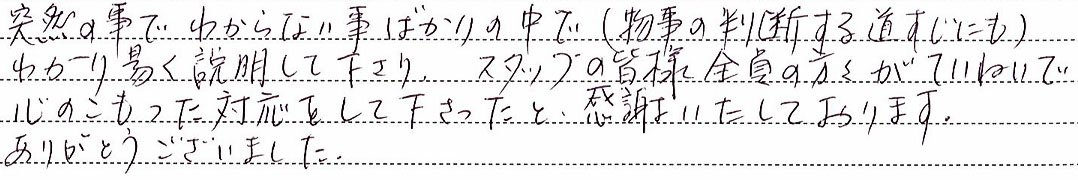 突然の事で わからない事ばかりの中で(物事の判断する道すじにも)
わかり易く説明して下さり、スタッフの皆様 全員の方々がていねいで
心のこもった対応をして下さったと、感謝いたしております。
ありがとうございました。